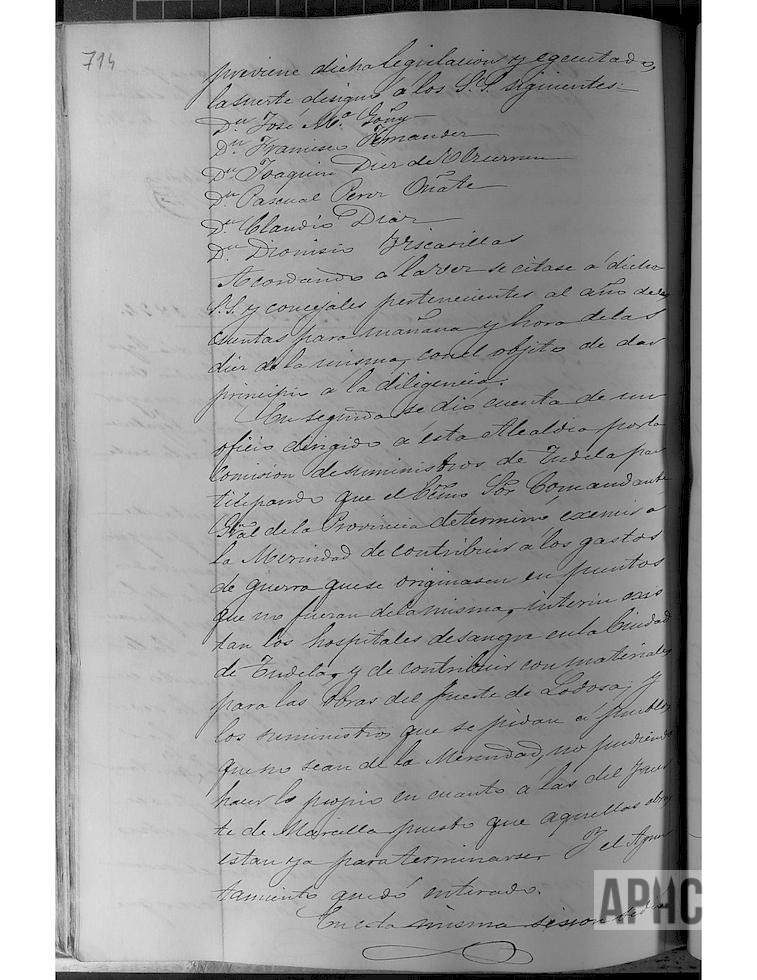 794
previene dicha legislacion y egecutado,
la suerte designó a los S.S. siguientes=
Dn. José Ma. Goñy
Dn. Francisco Fernandez
Dn. Joaquin Diez de Ulzurrun
Dn. Pascual Perez Oñate
Dn. Claudio Diaz
Dn. Dionisio Viscasillas
Acordando a la vez se citase a dichos
S.S. y concejales pertenecientes al año de las
cuentas para mañana y hora de las
diez de la misma, con el objeto de dar
principio a la diligencia.
En seguida se dió cuenta de un
oficio dirigido a esta Alcaldia por la
Comision de suministros de Tudela par
ticipando que el Exmo Sor Comandante
Gral de la Provincia determinó eximir a
la Merindad de contribuir a los gastos
de guerra que se originasen en puntos
que no fueran de la misma, interin exis
tan los hospitales de sangre en la Ciudad
de Tudela, y de contribuir con materiales
para las obras del fuerte de Lodosa, y
los suministros que se pidan a pueblos
que no sean de la Merindad, no pudiendo
hacer lo propio en cuanto a las del fuer
te de Marcilla puesto que aquellas obras
estan ya para terminarse. Y el Ayun
tamiento quedó enterado.
En esta misma sesion se dió
APHC